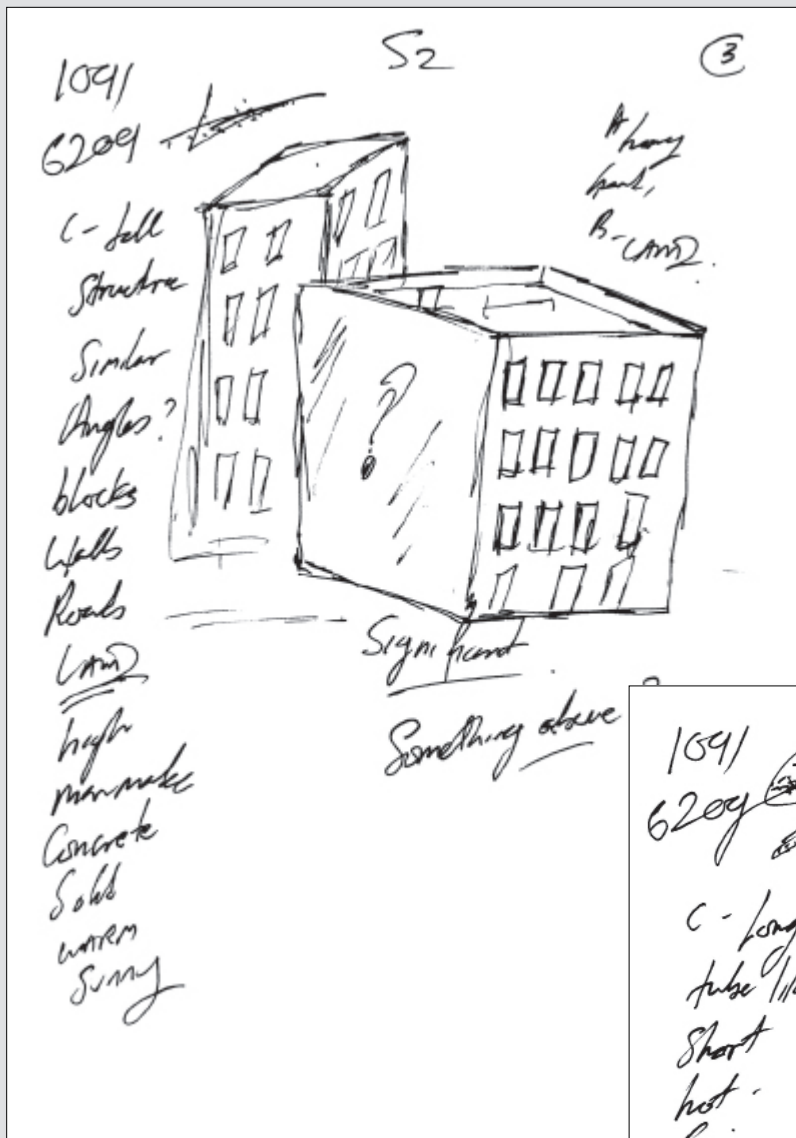 S2
3
1091
6209
A heavy
hard,
B- LAND.
C- tall
Structure
Similar
Angles?
blocks
Walls
Roads
LAND
high
manmade
Concrete
Solid
WARM
Sunny
?
Significant
Something above ?
1091
6209
C - Long
tube
Short
hot -